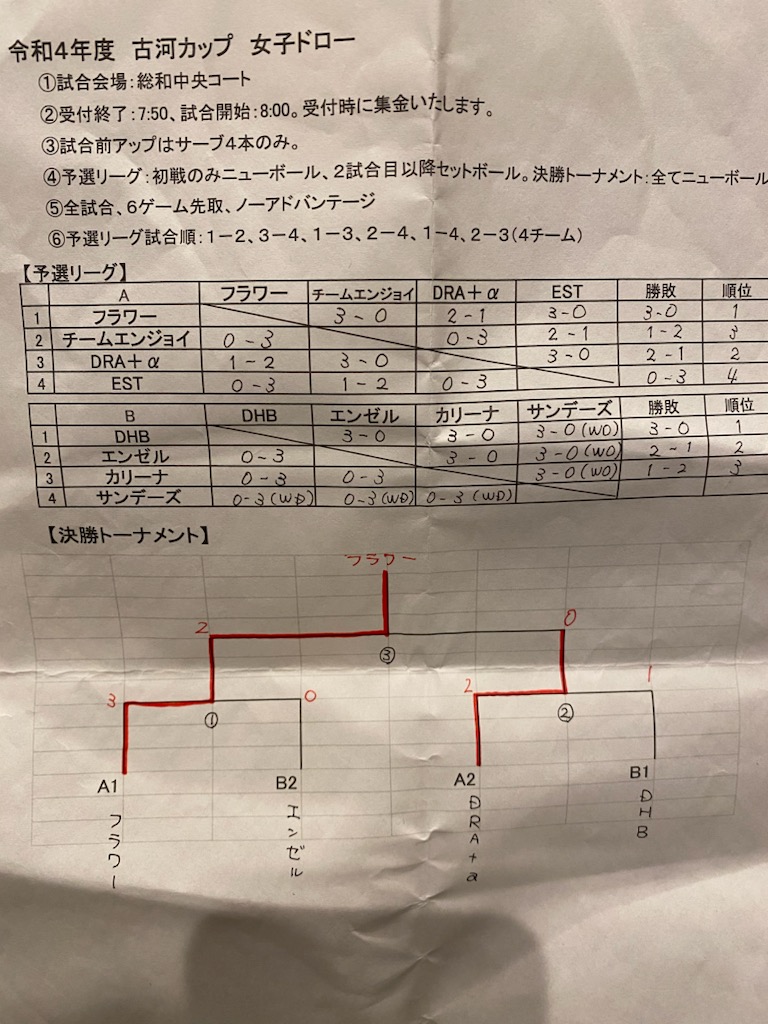 令和4年度 古河カップ 女子ドロー
①試合会場:総和中央コート
②受付終了:7:50、試合開始:8:00。受付時に集金いたします。
③試合前アップはサーブ4本のみ。
④予選リーグ:初戦のみニューボール、2試合目以降セットボール。決勝トーナメント:全てニューボール
⑤全試合、6ゲーム先取、ノーアドバンテージ
⑥予選リーグ試合順:1-2、3-4、1-3、2-4、1-4、2-3(4チーム)
【予選リーグ】
A フラワー チームエンジョイ DRA+α EST 勝敗 順位
1 フラワー 3-0 2-1 3-0 3-0 1
2 チームエンジョイ 0-3 0-3 2-1 1-2 3
3 DRA+α 1-2 3-0 3-0 2-1 2
4 EST 0-3 1-2 0-3 0-3 4
B DHB エンゼル カリーナ サンデーズ 勝敗 順位
1 DHB 3-0 3-0 3-0(WO) 3-0 1
2 エンゼル 0-3 3-0 3-0(WO) 2-1 2
3 カリーナ 0-3 0-3 3-0(WO) 1-2 3
4 サンデーズ 0-3(WD) 0-3(WD) 0-3(WD)
【決勝トーナメント】
フラワー
2 0
③
3 0 2 1
① ②
A1 B2 A2 B1
フラワー エンゼル DRA+α DHB